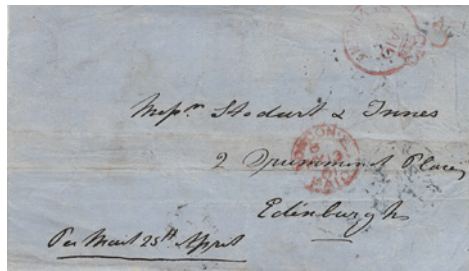 Messrs Stodart & Innes
2 Drummond Place
Edinburgh
Per Mail 25th April
LONDON
PAID